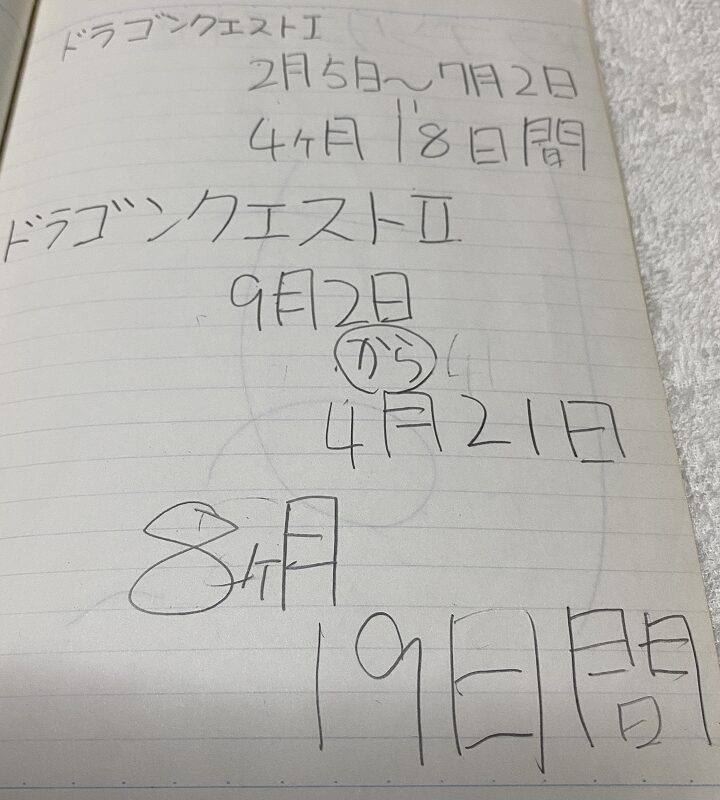 ドラゴンクエストⅠ
2月5日～7月2日
4ヶ月18日間
ドラゴンクエストⅡ
9月2日
から
4月21日
8ヶ月
19日間